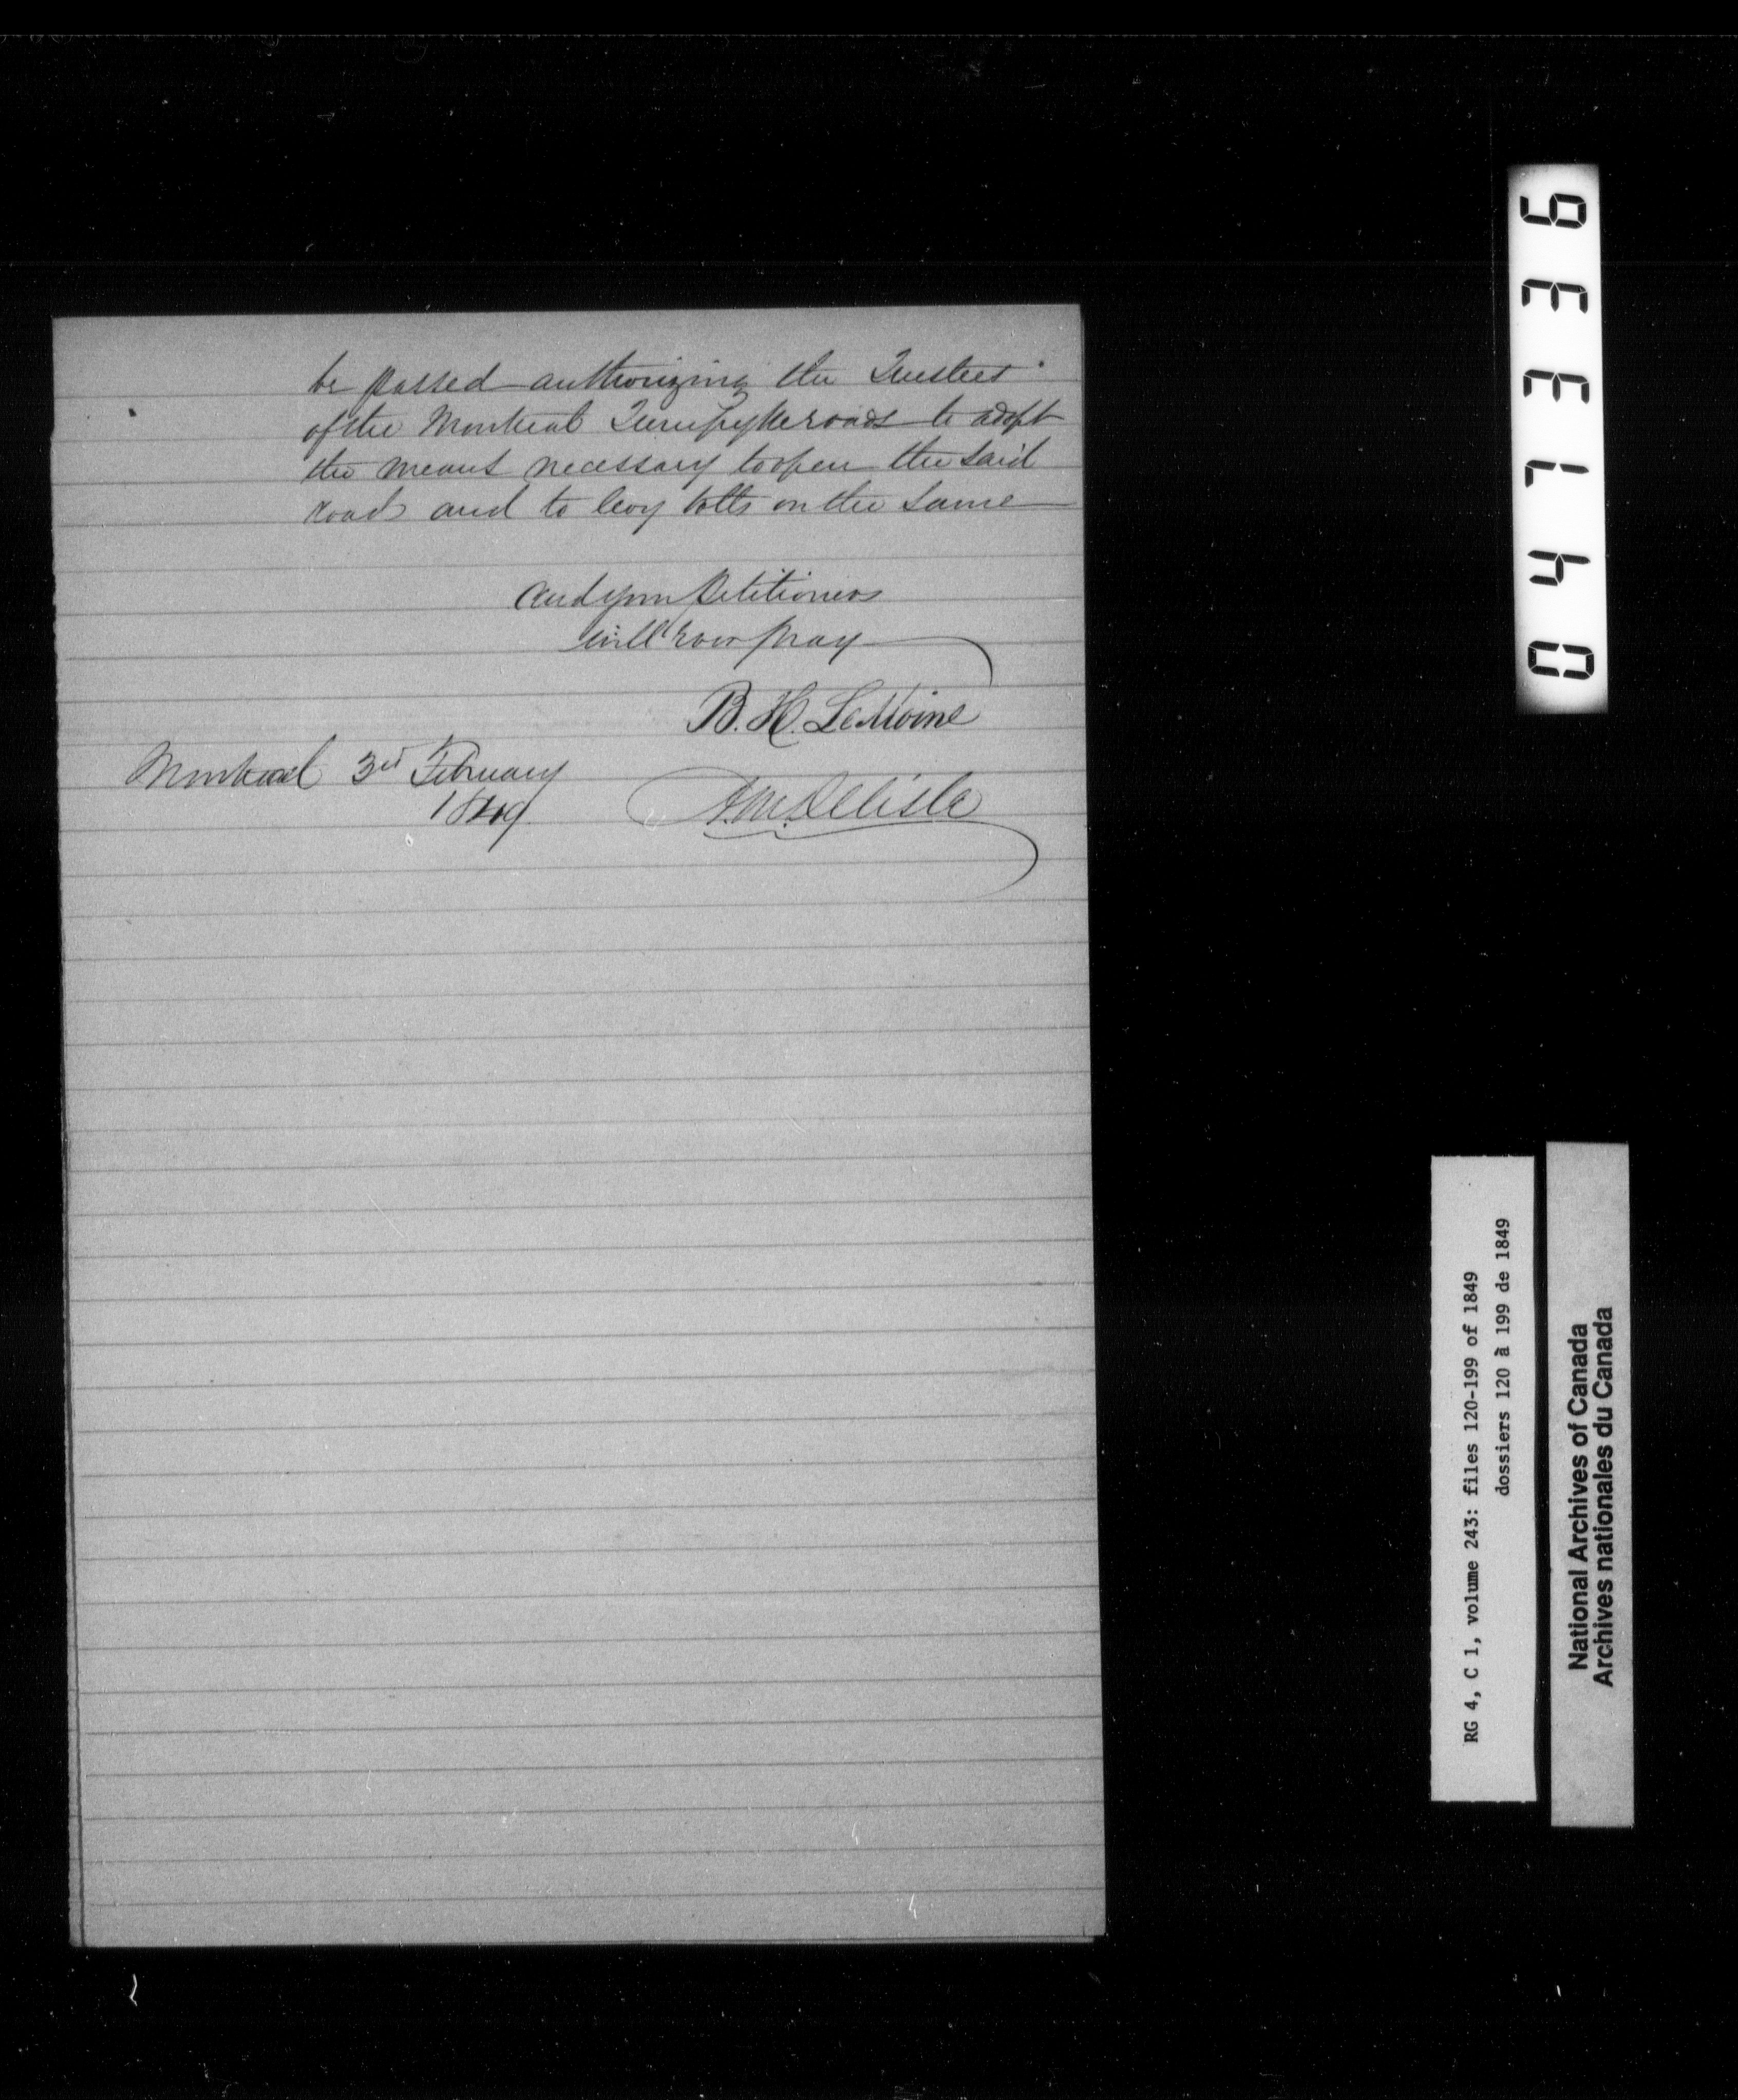 be passed authorizing the Trustees
of the Montreal Turnpike roads to adopt
the means necessary to open the said
road and to levy tolls on the same
and your Petitioners
will ever pray
B. H. LeMoine
Montreal 3rd February
1849
A. M. Delisle
047336
RG 4, C 1, volume 243: files 120-199 of 1849
dossiers 120 à 199 de 1849
National Archives of Canada
Archives nationales du Canada